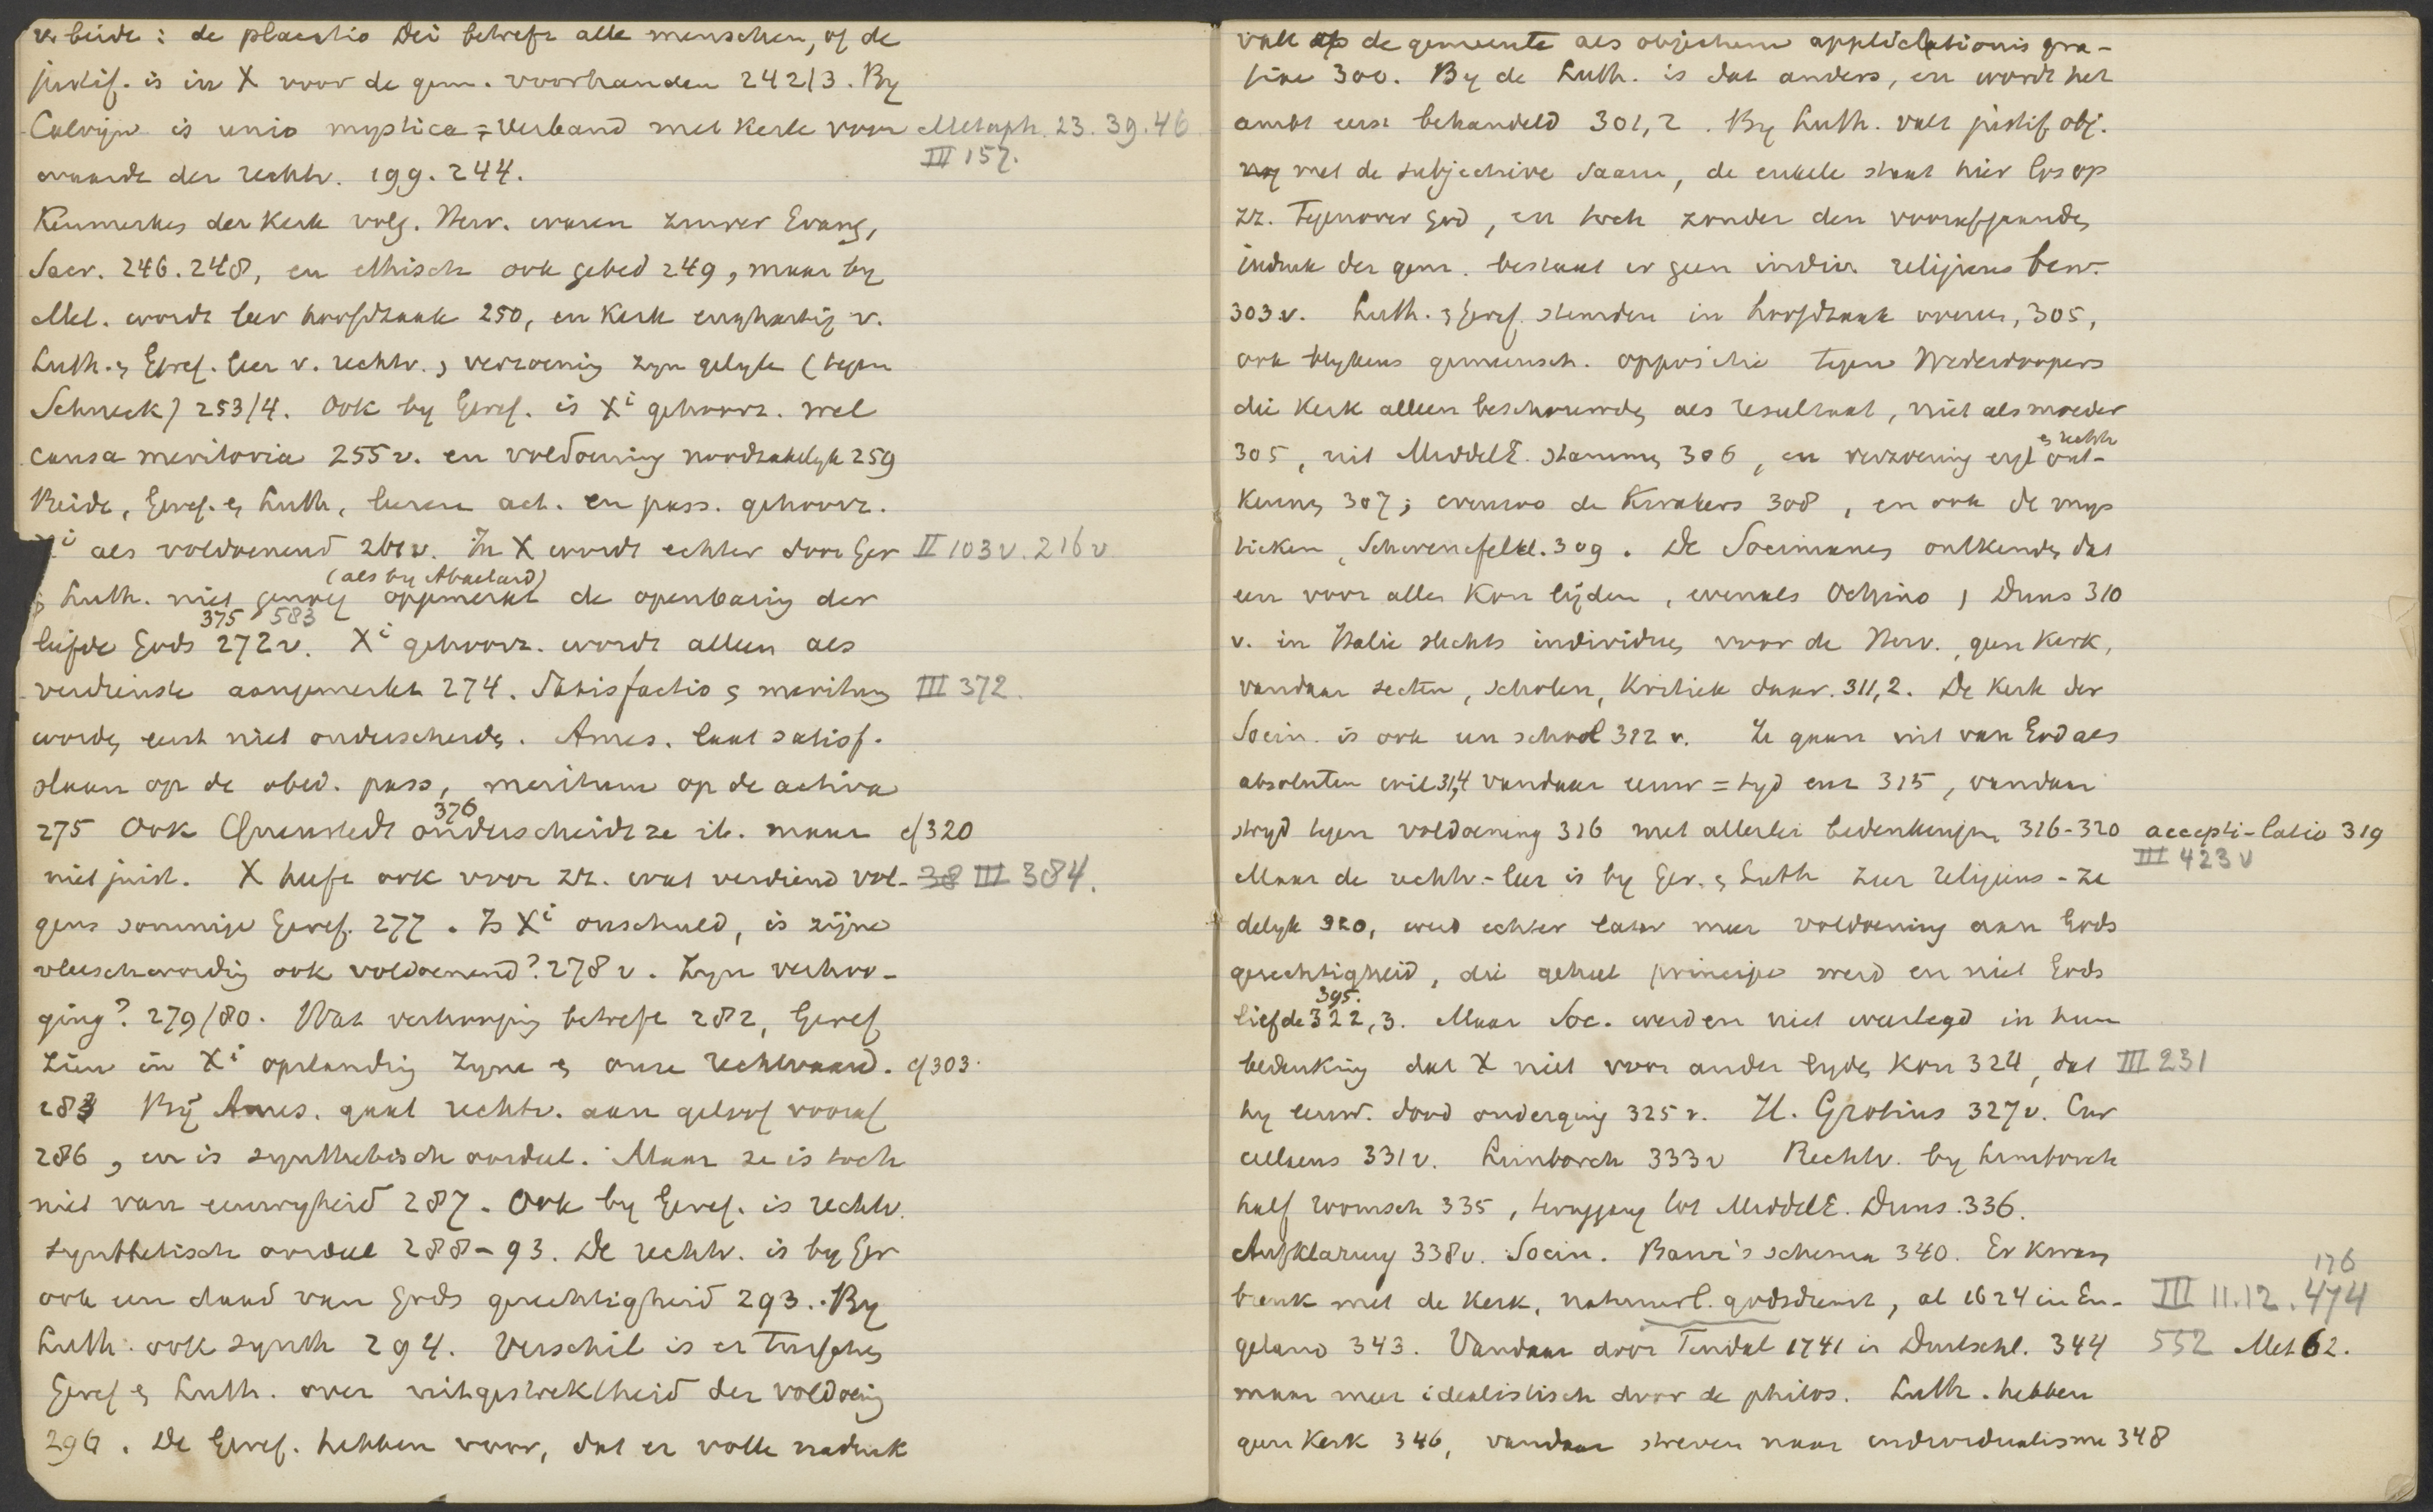 v. beide: de placatio Dei betreft alle menschen, of de
justif. is in X voor de gem. voorhanden 242/3. By
Calvijn is unio mystica = verband met kerk voor Metaph. 23. 39. 46
III 157.
waarde der rechtv. 199. 244.
Kenmerken der Kerk volg. Herv. waren zuiver Evang,
Sacr. 246. 248, en ethisch ook gebed 249, maar by
Mel. wordt leer hoofdzaak 250, en Kerk enghartig v.
Luth. & Geref. leer v. rechtv. & verzoening zyn gelyk (tegen
Schneck) 253/4. Ook by Geref. is Xi gehoorz. wel
causa meritoria 255 v. en voldoening noodzakelyk 259
Beide, Geref. & Luth, leeren act. en pass. gehoorz.
Xi als voldoenend 261 v. In X wordt echter door Ger II 103 v. 216 v
(als by Abaelard)
& Luth. niet genoeg opgemerkt de openbaring der
375 583
liefde Gods 272 v. Xi gehoorz. wordt alleen als
verdienste aangemerkt 274. Satisfactio & meritum III 372.
worden eerst niet onderscheiden. Ames. laat satisf.
slaan op de obed. pass, meritum op de activa
376
275 Ook Quenstedt onderscheidt ze ib. maar cf 320
niet juist. X heeft ook voor zz. wat verdiend vol- 38 III 384.
gens sommige Geref. 277. Is Xi onschuld, is zijne
vleeschwording ook voldoenend? 278 v. Zyn verhoo-
ging? 279/80. Wat verhooging betreft 282, Geref
zien in Xi opstanding zyne & onze rechtvaard. cf 303.
283 Bij Ames. gaat rechtv. aan geloof vooraf
286, en is synthetisch oordeel. Maar ze is toch
niet van eeuwigheid 287. Ook by Geref. is rechtv.
synthetisch oordeel 288-93. De rechtv. is by Ger
ook een daad van Gods gerechtigheid 293. By
Luth. ook synth 294. Verschil is er tusschen
Geref & Luth. over uitgestrektheid der voldoening
296. De Geref. hebben voor, dat er volle nadruk
valt op de gemeente als objectum applicationis gra-
tiae 300. By de Luth. is dat anders, en wordt het
ambt eerst behandeld 301,2. By Luth. valt justif. obj.
met de subjectieve saam, de enkele staat hier los op
zz. Tegenover God, en toch zonder den voorafgaanden
indruk der gem. bestaat er geen individ. religieus bew.
303 v. Luth. & Geref. stemden in hoofdzaak overeen, 305,
ook blykens gemeensch. oppositie tegen Wederdoopers
die Kerk alleen beschouwden als resultaat, niet als moeder
& rechtv
305, uit MiddelE. stammen 306, en verzoening ont-
kennen 307; evenzoo de Kwakers 308, en ook de mys
tieken, Schwenckfeld. 309. De Socinianen ontkenden dat
een voor allen kon lijden, evenals Ochino & Duns 310
v. in Italie slechts individuen voor de Herv., geen Kerk,
vandaar secten, scholen, Kritiek daar. 311,2. De Kerk der
Socin. is ook een school 312 v. Ze gaan uit van God als
absoluten wil 314 vandaar eeuw = tyd enz 315, vandaar
stryd tegen voldoening 316 met allerlei bedenkingen 316-320 accepti-latio 319
III 423 v
Maar de rechtv.-leer is by Ger. & Luth zeer religieus-ze
delyk 320, werd echter later meer voldoening aan Gods
gerechtigheid, die geheel principe werd en niet Gods
395.
liefde 322,3. Maar Soc. werden niet weerlegd in hun
bedenking dat X niet voor ander lyden kon 324, dat III 231
hy eeuw. dood onderging 325 v. H. Grotius 327 v. Cur
cellaeus 331 v. Limborch 333 v Rechtv. by Limborch
half roomsch 335, teruggang tot MiddelE. Duns. 336.
Aufklärung 338 v. Socin. Baur's schema 340. Er kwam
176
breuk met de Kerk, natuurl. godsdienst, al 1624 in En- III 11.12. 474
geland 343. Vandaar door Tindal 1741 in Duitschl. 344 552 Met 62.
maar meer idealistisch door de philos. Luth. hebben
geen Kerk 346, vandaar streven naar individualisme 348